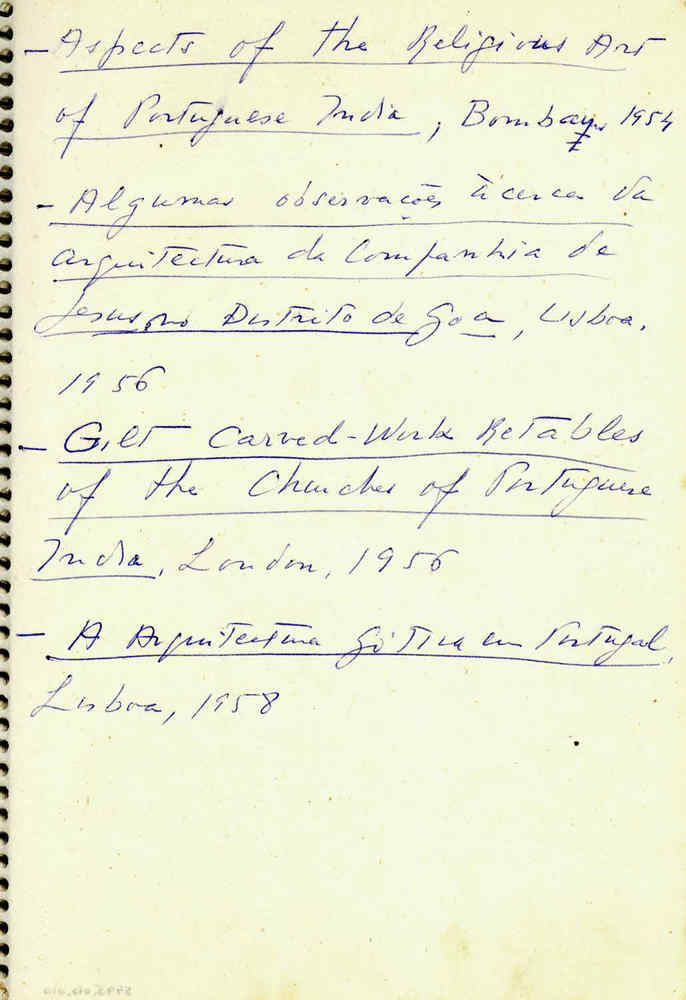 - Aspects of the Religious Art
of Portuguese India, Bombay, 1954
- Algumas observações àcerca da
arquitectura da Companhia de
Jesus no Distrito de Goa, Lisboa,
1956
- Gilt Carved-Work Retables
of the Churches of Portuguese
India, London, 1956
- A Arquitectura Gótica em Portugal,
Lisboa, 1958